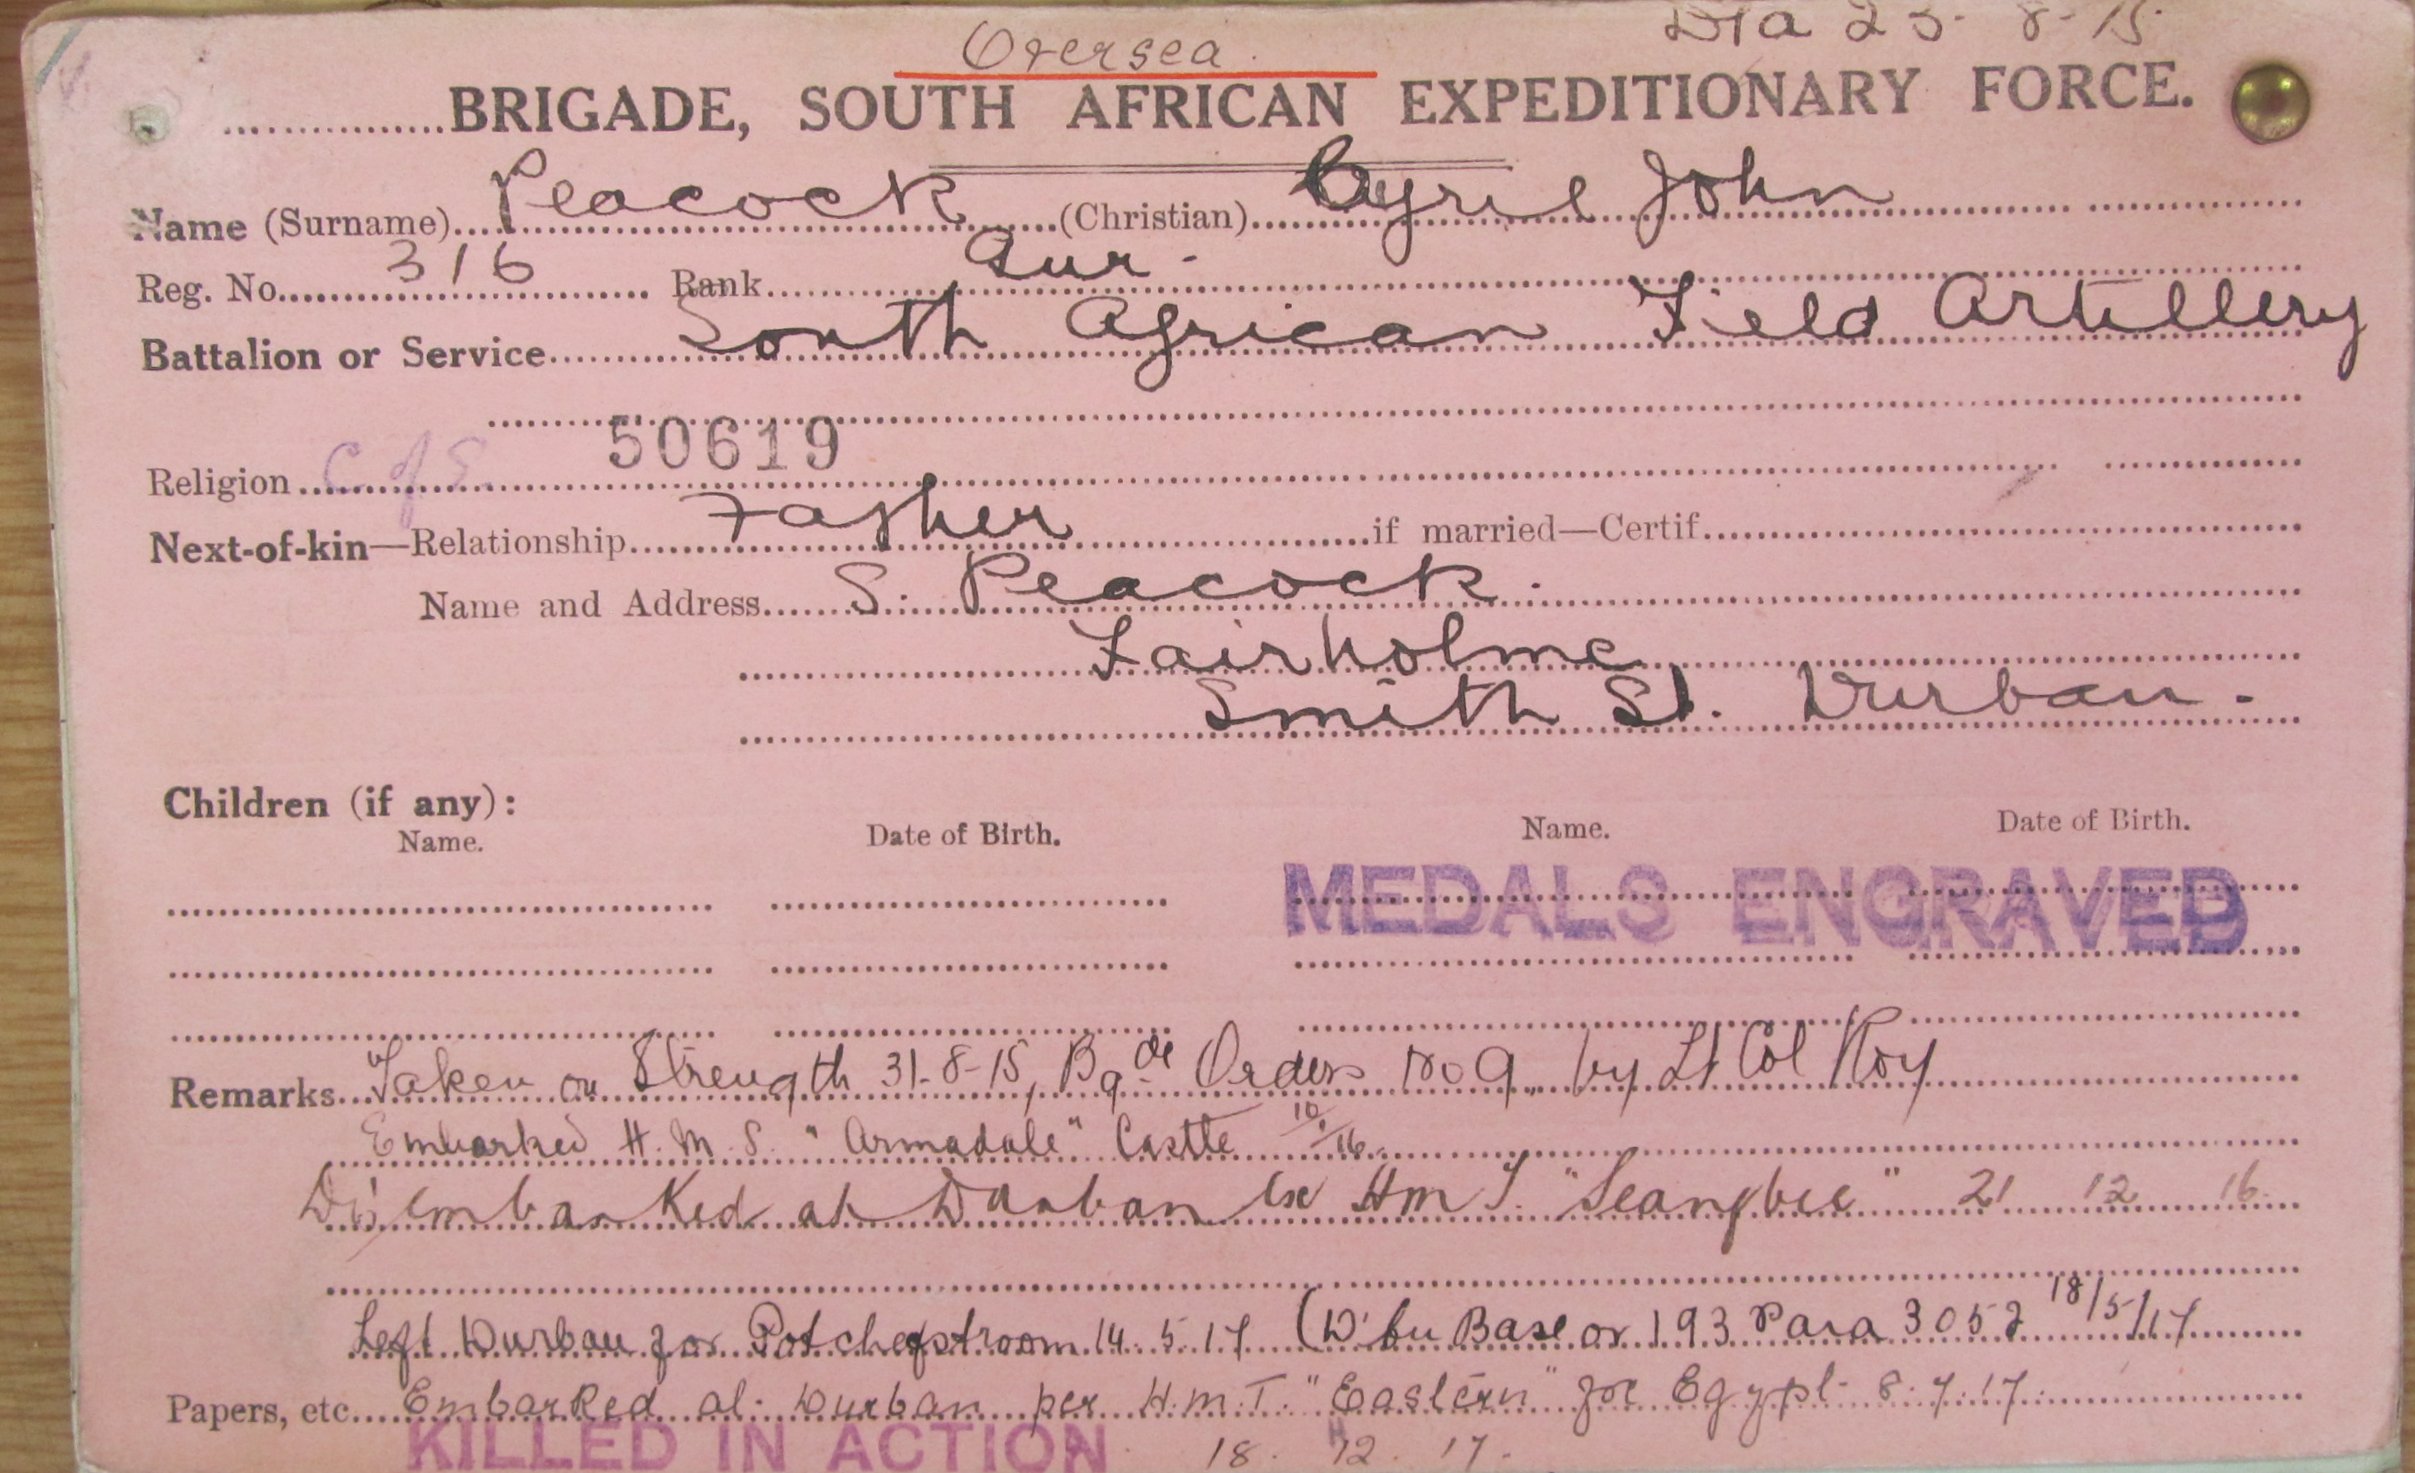 Oversea
23-8-15
BRIGADE, SOUTH AFRICAN EXPEDITIONARY FORCE.
Name (Surname) Peacock (Christian) Cyril John
Reg. No. 316 Rank Gnr.
Battalion or Service South African Field Artillery
50619
Religion C of E
Next-of-kin—Relationship Father if married—Certif.
Name and Address S. Peacock.
Fairholme
Smith St. Durban.
Children (if any):
Name. Date of Birth. Name. Date of Birth.
MEDALS ENGRAVED
Remarks Taken on Strength 31-8-15, Bgde Orders No 9. by Lt Col Roy
Embarked H.M.S. "Armadale" Castle 16.
Disembarked at Durban ex HMT. "Seangbee" 21 12 16.
Left Durban for Potchefstroom 14.5.17 (D'bn Base or 193 Para 3052 18/5/17
Papers, etc. Embarked at Durban per H.M.T. "Eastern" for Egypt 8.7.17.
KILLED IN ACTION 18. 12. 17.